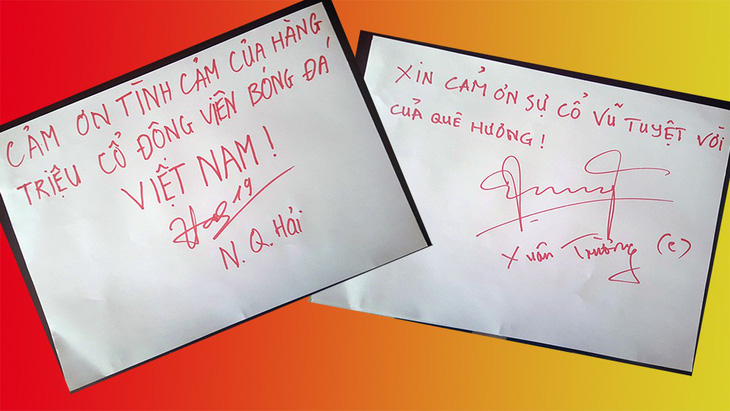 CẢM ƠN TÌNH CẢM CỦA HÀNG
TRIỆU CỔ ĐỘNG VIÊN BÓNG ĐÁ
VIỆT NAM!
19
N. Q. Hải
XIN CẢM ƠN SỰ CỔ VŨ TUYỆT VỜI
CUẢ QUÊ HƯƠNG!
Xuân Trường (c)